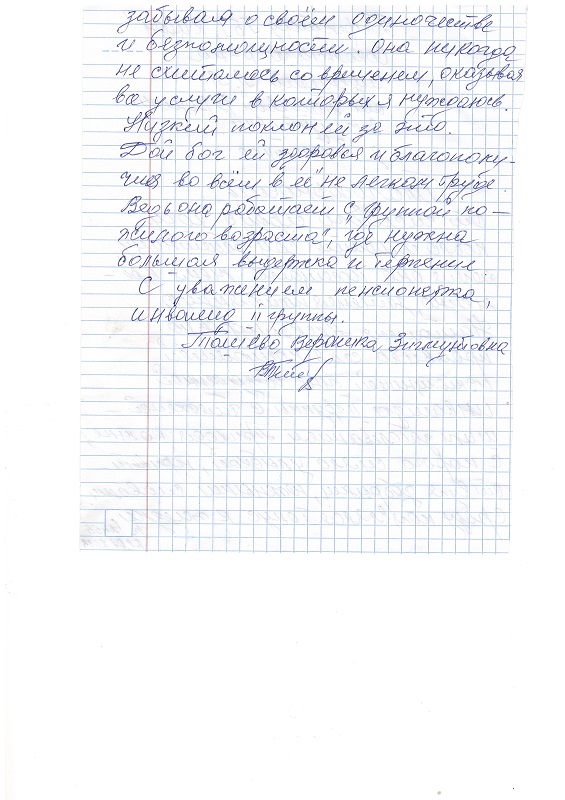 забывая о своём одиночестве
и безпомощности. Она никогда
не считалась со временем, оказывая
все услуги в которых я нуждаюсь.
Низкий поклон ей за это.
Дай бог ей здоровья и благополу-
чия во всём в её не легком труде.
Ведь она работает с "группой по-
жилого возраста", где нужна
большая выдержка и терпение.
С уважением пенсионерка,
инвалид II группы.
Вероника Зигмунтовна